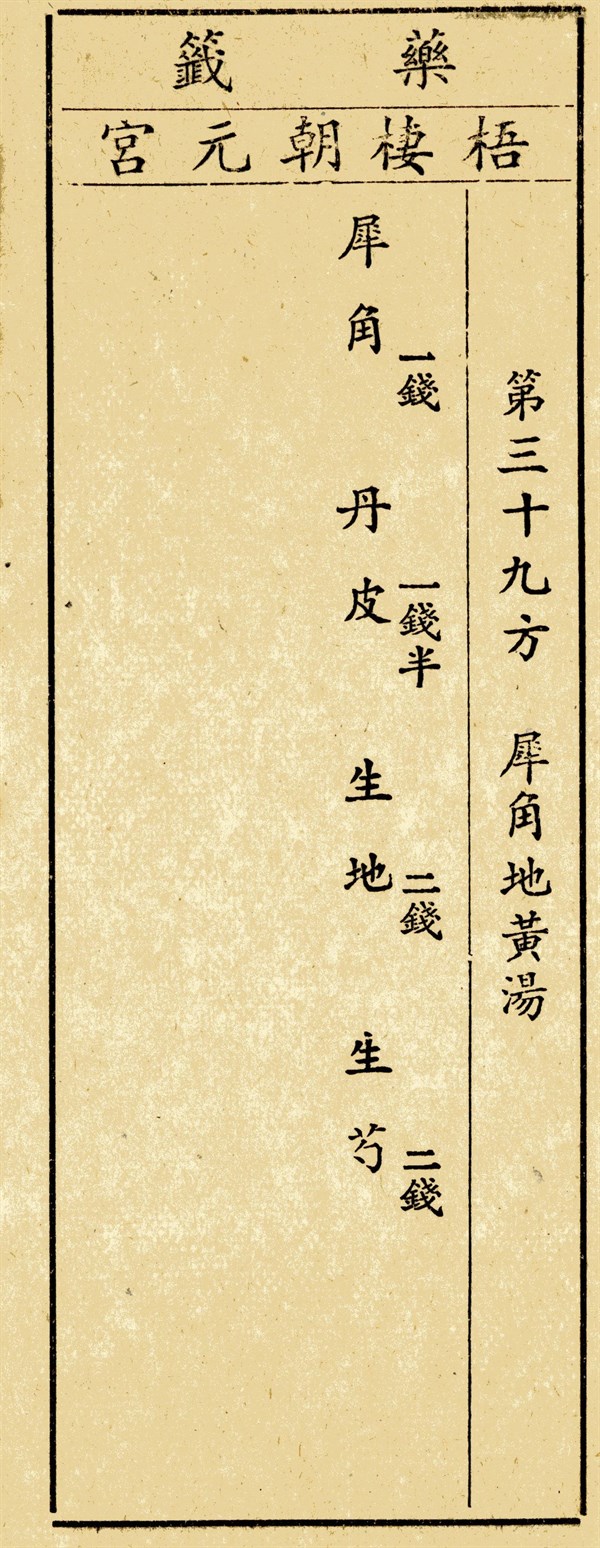 藥籤
梧棲朝元宮
第三十九方 犀角地黃湯
犀角 一錢 丹皮 一錢半 生地 二錢 生芍 二錢